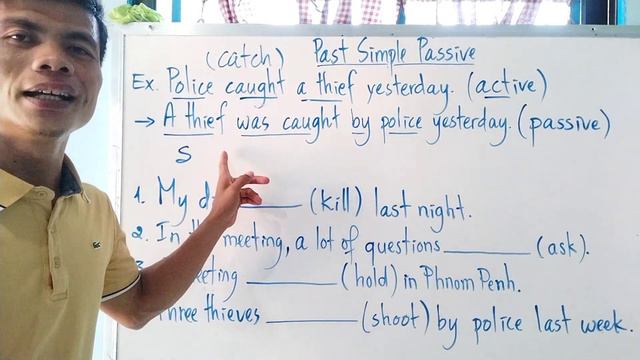 (catch) Past Simple Passive
Ex. Police caught a thief yesterday. (active)
→ A thief was caught by police yesterday. (passive)
S
1. My ______ (kill) last night.
2. In meeting, a lot of questions ______ (ask).
______ (hold) in Phnom Penh.
Three thieves ______ (shoot) by police last week.